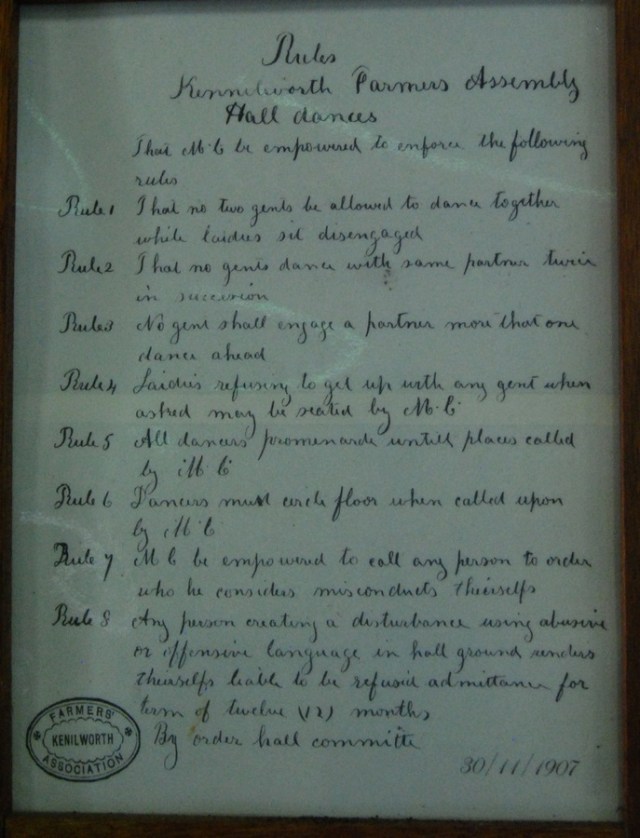 Rules
Kennelworth Farmers Assembly
Hall dances
That M.C be empowered to enforce the following
rules
Rule 1 That no two gents be allowed to dance together
while laidies sit disengaged
Rule 2 That no gents dance with same partner twice
in succession
Rule 3 No gent shall engage a partner more that one
dance ahead
Rule 4 Laidies refusing to get up with any gent when
asked may be seated by M.C
Rule 5 All dancers promenarde untill places called
by M.C
Rule 6 Dancers must circle floor when called upon
by M.C
Rule 7 M C be empowered to call any person to order
who he considers misconducts theirselfs
Rule 8 Any person creating a disturbance using abusive
or offensive language in hall ground renders
theirselfs liable to be refused admittance for
term of twelve (12) months
By order hall committe
FARMERS'
KENILWORTH
ASSOCIATION
30/11/1907